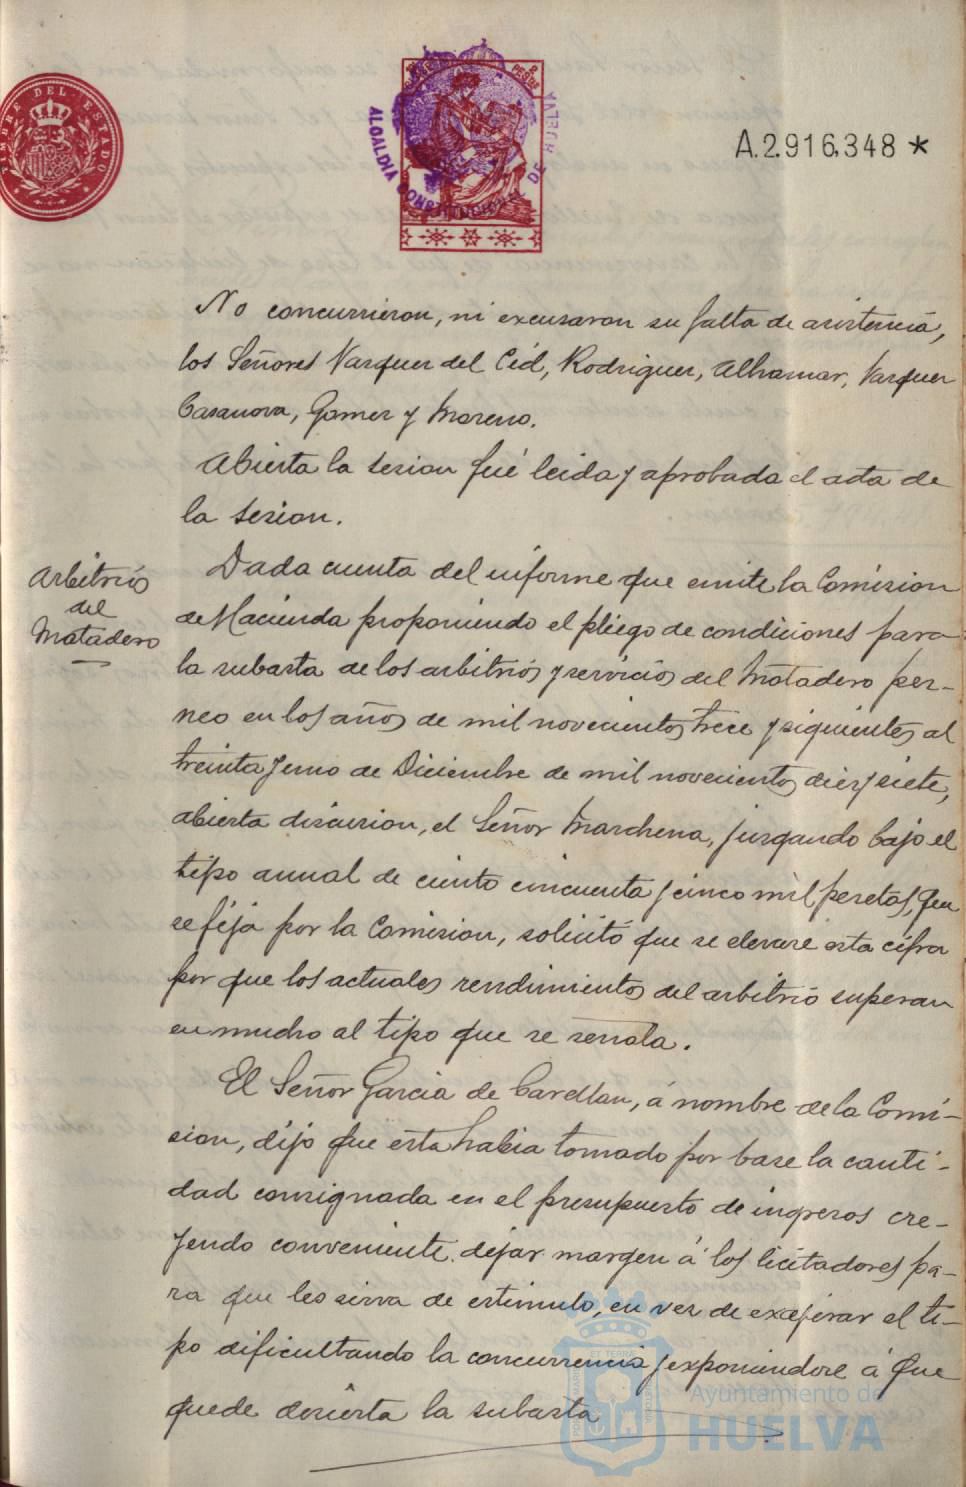 TIMBRE DEL ESTADO
2 PESETAS
ALCALDIA CONSTITUCIONAL DE HUELVA
A.2.916,348 *
No concurrieron, ni excusaron su falta de asistencia,
los Señores Vazquez del Cid, Rodriguez, Alhamar, Vazquez
Casanova, Gomez y Moreno.
Abierta la sesion fué leida y aprobada el acta de
la sesion.
Arbitrios
del
Matadero
Dada cuenta del informe que emite la Comision
de Hacienda proponiendo el pliego de condiciones para
la subasta de los arbitrios y servicios del Matadero per-
neo en los años de mil novecientos trece y siguientes al
treinta y uno de Diciembre de mil novecientos diez y siete,
abierta discusion, el Señor Marchena, juzgando bajo el
tipo anual de ciento cincuenta y cinco mil pesetas, que
se fija por la Comision, solicitó que se elevase esta cifra
por que los actuales rendimientos del arbitrio superan
en mucho al tipo que se senala.
El Señor Garcia de Cardllan, á nombre de la Comi-
sion, dijo que esta habia tomado por base la canti-
dad consignada en el presupuesto de ingresos cre-
yendo conveniente dejar margen á los licitadores pa-
ra que les sirva de estimulo, en vez de exajerar el ti-
po dificultando la concurrencia y exponiendose á que
quede desierta la subasta
Ayuntamiento de
HUELVA